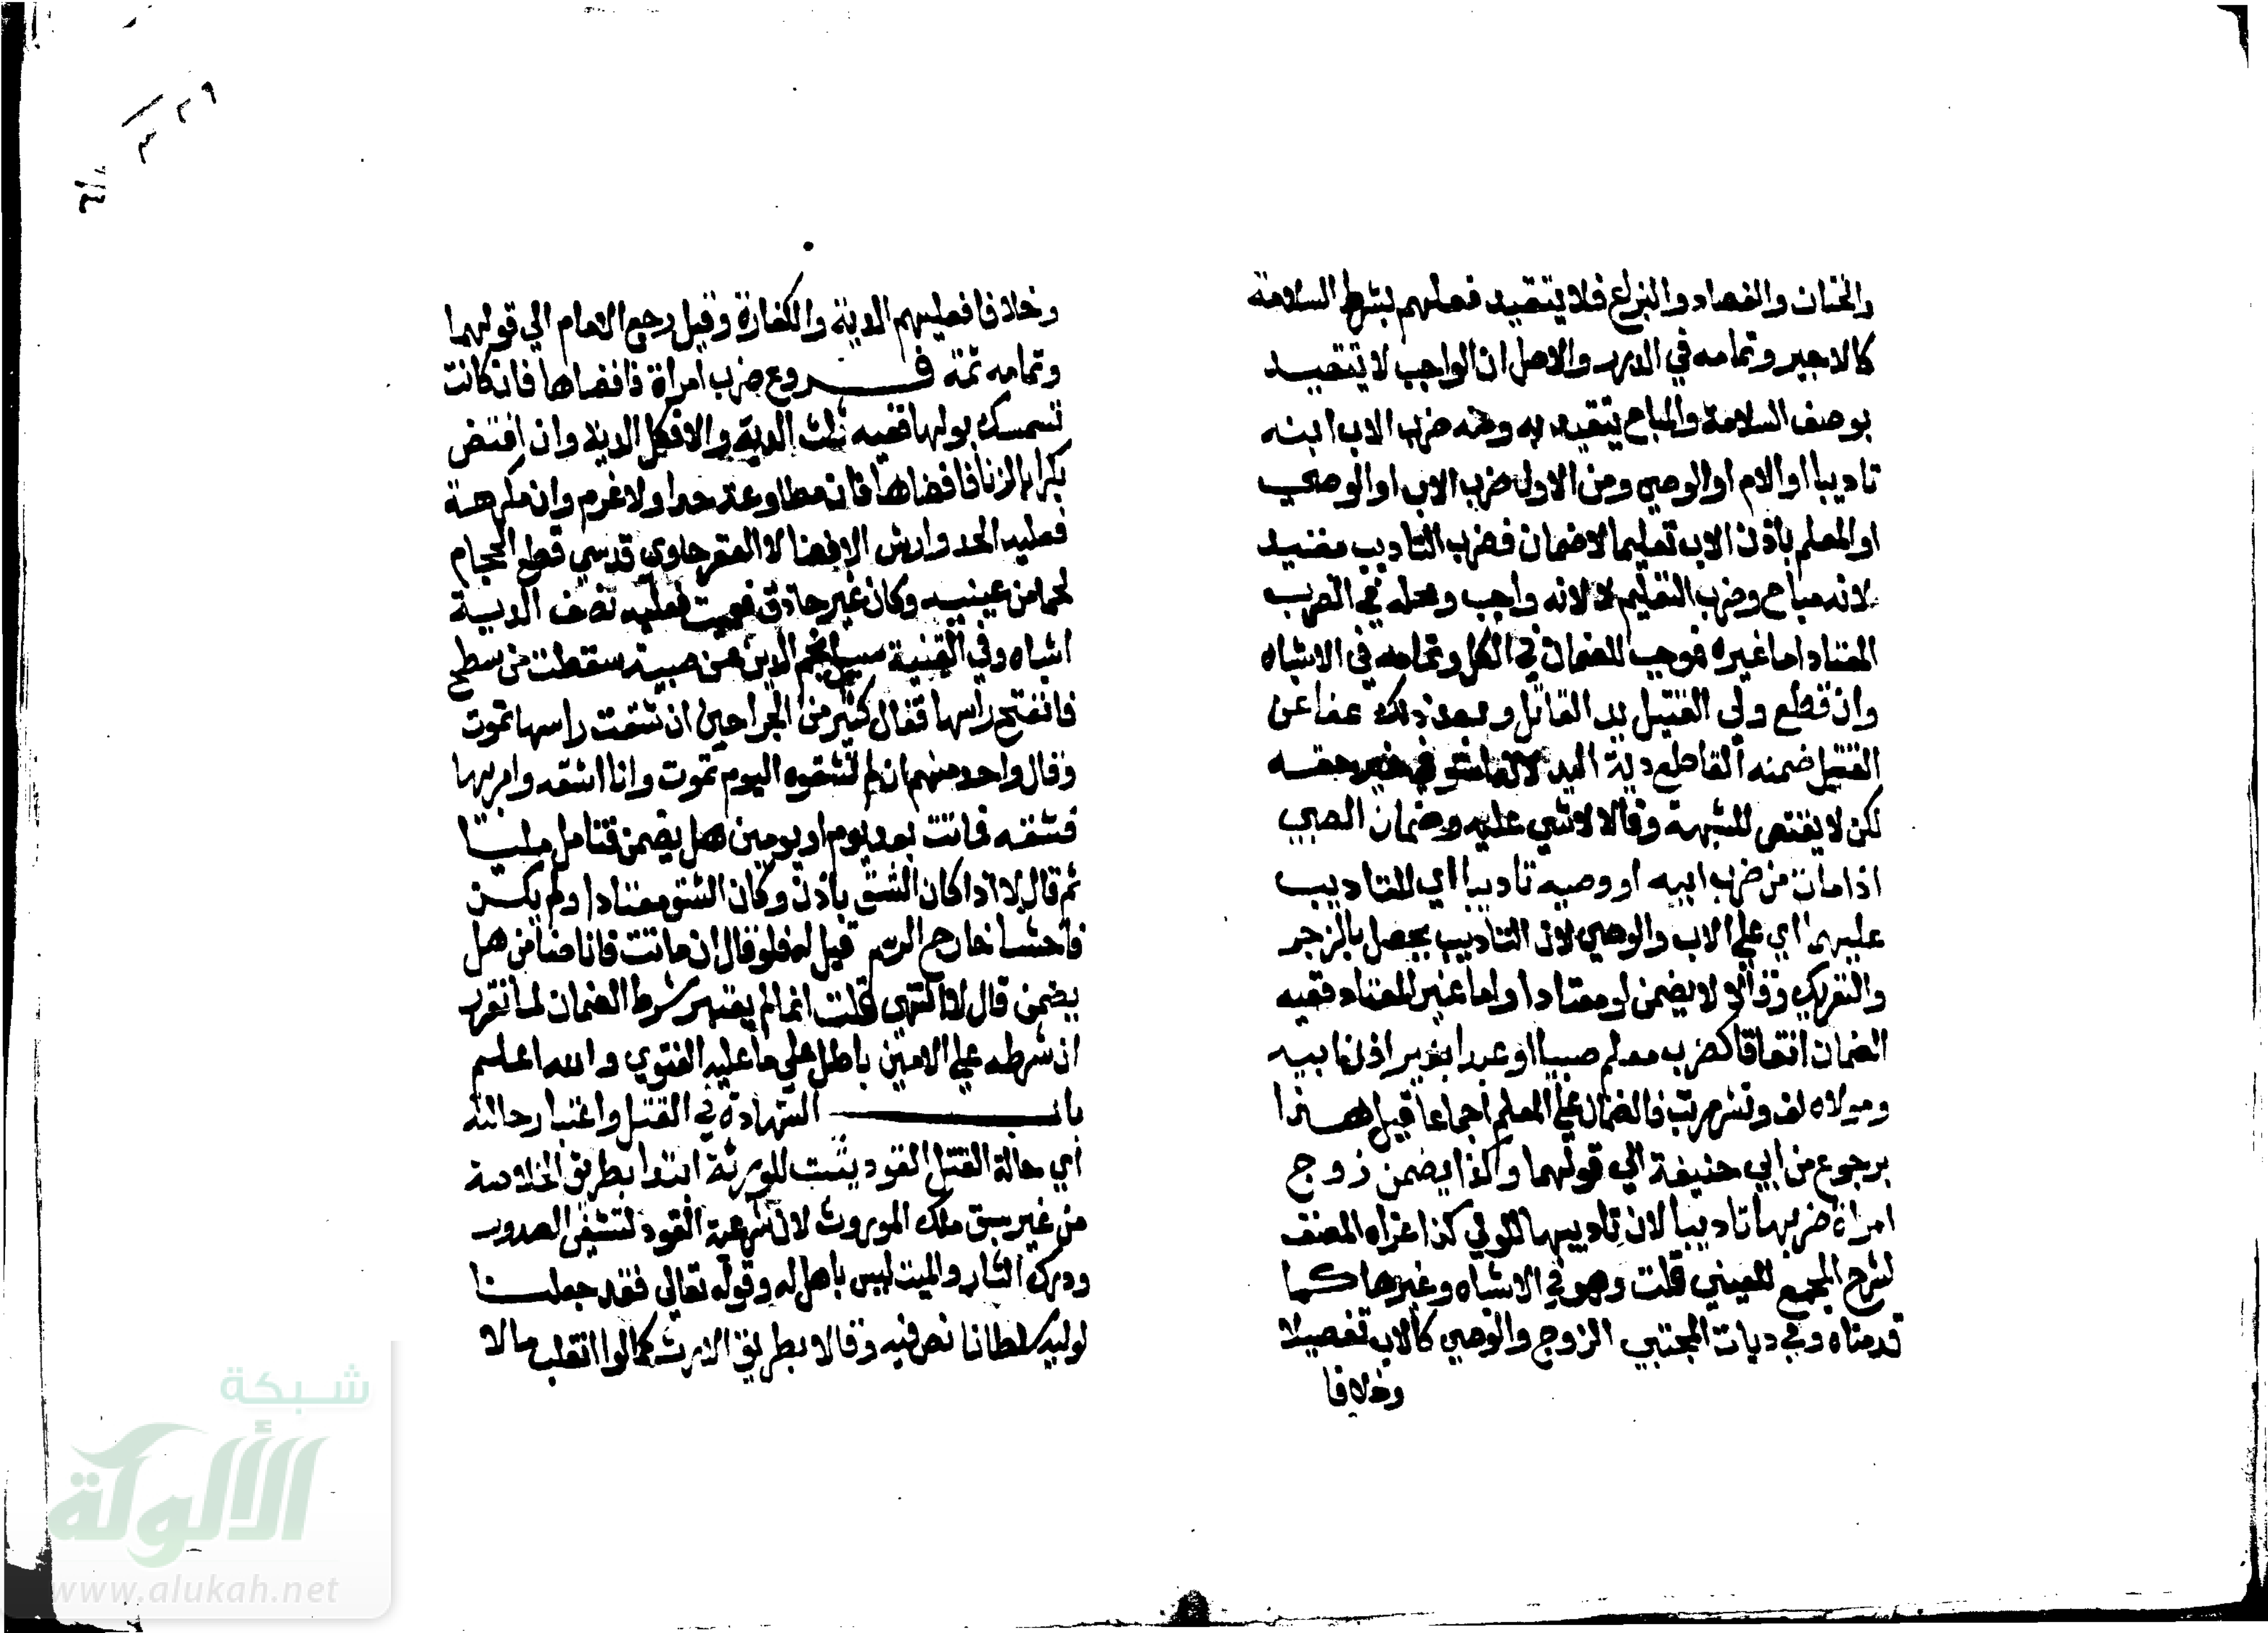 والختان والفصاد والبزاغ فلا يتقيد فعلهم بشرط السلامة
كالاجير وتمامه في الدرر والاصل ان الواجب لا يتقيد
بوصف السلامة والمباح يتقيد به ومنه ضرب الاب ابنه
تاديبا او الام او الوصي ومن الاول ضرب الاب او الوصي
او المعلم باذن الاب تعليما لا ضمان فضرب التاديب مقيد
لانه مباح وضرب التعليم لا لانه واجب ومحله في الضرب
المعتاد اما غيره فوجب للضمان في الكل وتمامه في الاشباه
وان قطع ولي القتيل يد القاتل وبعد ذلك عفا عن
القتل ضمنه القاطع دية اليد لانه استوفي غير حقه
لكن لا يقتص للشبهة وقالا لا شي عليه وضمان الصبي
اذا مات من ضرب ابيه او وصيه تاديبا اي للتاديب
عليهما اي علي الاب والوصي لان التاديب يحصل بالزجر
والتعريك وقالا لا يضمن لو معتادا واما غير المعتاد ففيه
الضمان اتفاقا كضرب معلم صبيا او عبدا بغير اذن ابيه
ومولاه لف ونشر مرتب فالضمان علي المعلم اجماعا قيل هذا
برجوع من ابي حنيفة الي قولهما وكذا يضمن زوج
امراة ضربها تاديبا لان تاديبها للولي كذا عزاه المصنف
لشرح المجمع للعيني قلت وهو في الاشباه وغيرها كما
قدمناه وفي ديات المجتبي الزوج والوصي كالاب تفصيلا
وخلافا
وخلافا فعليهم الدية والكفارة وقيل رجع الامام الي قولهما
وتمامه ثمة فروع ضرب امراة فافضاها فان كانت
تستمسك بولها ففيه ثلث الدية والا فكل الدية وان افتض
بكرا بالزنا فافضاها فان مطاوعة حدا ولا غرم وان مكرهة
فعليه الحد وارش الافضا لا العقر حاوي قدسي قطع الحجام
لحما من عينيه وكان غير حاذق فعميت فعليه نصف الدية
اشباه وفي القنية سيل نجم الدين عن صبية سقطت من سطح
فانفتح راسها فقال كثير من الجراحين ان شقت راسها تموت
وقال واحد منهم ان لم تشقوه اليوم تموت وانا اشقه وابريها
فشقه فماتت بعد يوم او يومين هل يضمن فتامل مليا
ثم قال لا اذا كان الشق باذن وكان الشق معتادا ولم يكن
فاحشا خارج الرسم قيل له فلو قال ان ماتت فانا ضامن هل
يضمن قال لا انتهي قلت انما لم يعتبر شرط الضمان لما تقرر
ان شرطه علي الامين باطل علي ما عليه الفتوي والله اعلم
باب الشهادة في القتل واعتبار حالته
اي حالة القتل القود يثبت للورثة ابتدا بطريق الخلافة
من غير سبق ملك الموروث لان شرعية القود لتشفي الصدور
ودرك الثار والميت ليس باهل له وقوله تعالي فقد جعلنا
لوليه سلطانا نص فيه وقالا بطريق الارث كما لو انقلب مالا
شبكة
الألوكة
www.alukah.net